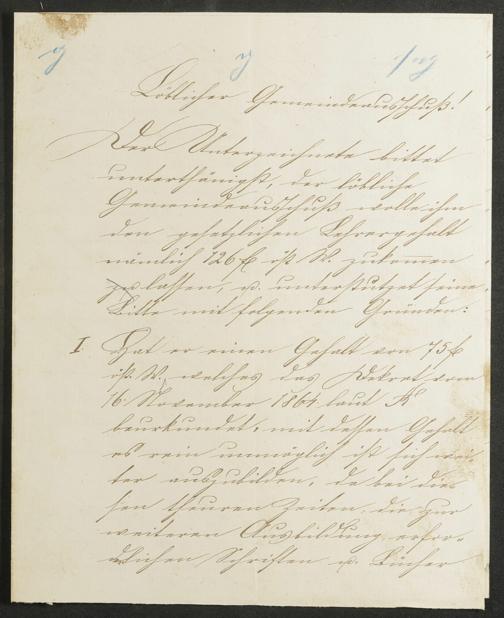 Löblicher Gemeindeausschuß!
Der Unterzeichnete bittet
unterthänigst, der löbliche
Gemeindeausschuß wolle ihm
den gesetzlichen Lehrergehalt
nämlich 126 f öst. W. zukommen
zu lassen, u. unterstützet seine
Bitte mit folgenden Gründen:
I Hat er einen Gehalt von 75 f
öst. W., welches das Dekret vom
16. November 1864 laut
beurkundet, mit dessen Gehalt
es rein unmöglich ist sich wei
ter auszubilden, da bei die
sen theuren Zeiten, die zur
weiteren Ausbildung erfor-
dlichen Schriften u. Bücher